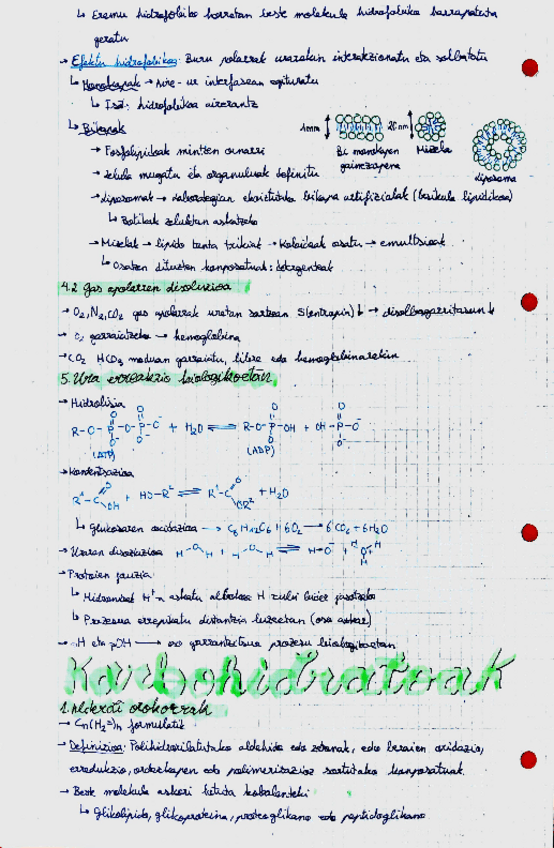 ↳ Eremu hidrofobiko horretan beste molekula hidrofobiko barrapatuta
geratu
→ Efektu hidrofobikoa: Buru polarrak urarekin interakzionatu eta solbatatu
↳ Monokapak → Aire-ur interfasean egituratu
↳ Isats hidrofobikoa airerantz
↳ Bikapak
1nm
20nm
Bi monokapen
gainezarpena
Mizela
liposoma
→ Fosfolipidoak mintzen oinarri
→ zelula mugatu eta organuluak definitu
→ liposomak → laborategian ekoiztutako bikapa artifizialak (besikula lipidikoa)
↳ Botikak zeluletan askatzeko
→ Mizelak → lipido tanta txikiak → Koloideak osatu → emultsioak
↳ Osatzen dituzten konposatuak: detergenteak
4.2 Gas apolarren disoluzioa
→ O2, N2, CO2 gas apolarrak uretan sartzean S(entropia)↓ → disolbagarritasun↓
→ O2 garraiatzeko → hemoglobina
→ CO2 HCO3 moduan garraiatu, libre edo hemoglobinarekin
5. Ura erreakzio biologikoetan
→ Hidrolisia
R-O-P-O-P-O⁻ + H2O ⇌ R-O-P-OH + OH-P-O⁻
(ATP) (ADP)
→ Kondentsazioa
R¹-C OH + HO-R² ⇌ R¹-C OR² + H2O
↳ Glukosaren oxidazioa → C6H12O6 + 6O2 → 6CO2 + 6H2O
→ Uraren disoziazioa
→ Protoien jauzia
↳ Hidronioak H⁺-a askatu alboko H zubi bidez
↳ Prozesua errepikatu distantzia luzeetan (oso azkar)
→ pH eta pOH → oso garrantzitsua prozesu biologikoetan
Karbohidratoak
1. Alderdi orokorrak
→ Cn(H2O)n formulatik
→ Definizioa: Polihidroxilatutako aldehido edo zetonak, edo beraien oxidazio,
erredukzio, ordezkapen edo polimerizazioz sortutako konposatuak.
→ Beste molekula askori lotuta kobalenteki
↳ Glikolipido, glikoproteina, proteoglikano edo peptidoglikano